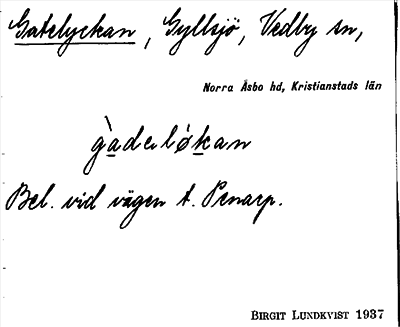 Gatelyckan, Gyllsjö, Vedby sn,
Norra Åsbo hd, Kristianstads län
gàdeløkan
Bel. vid vägen t. Penarp.
BIRGIT LUNDKVIST 1937